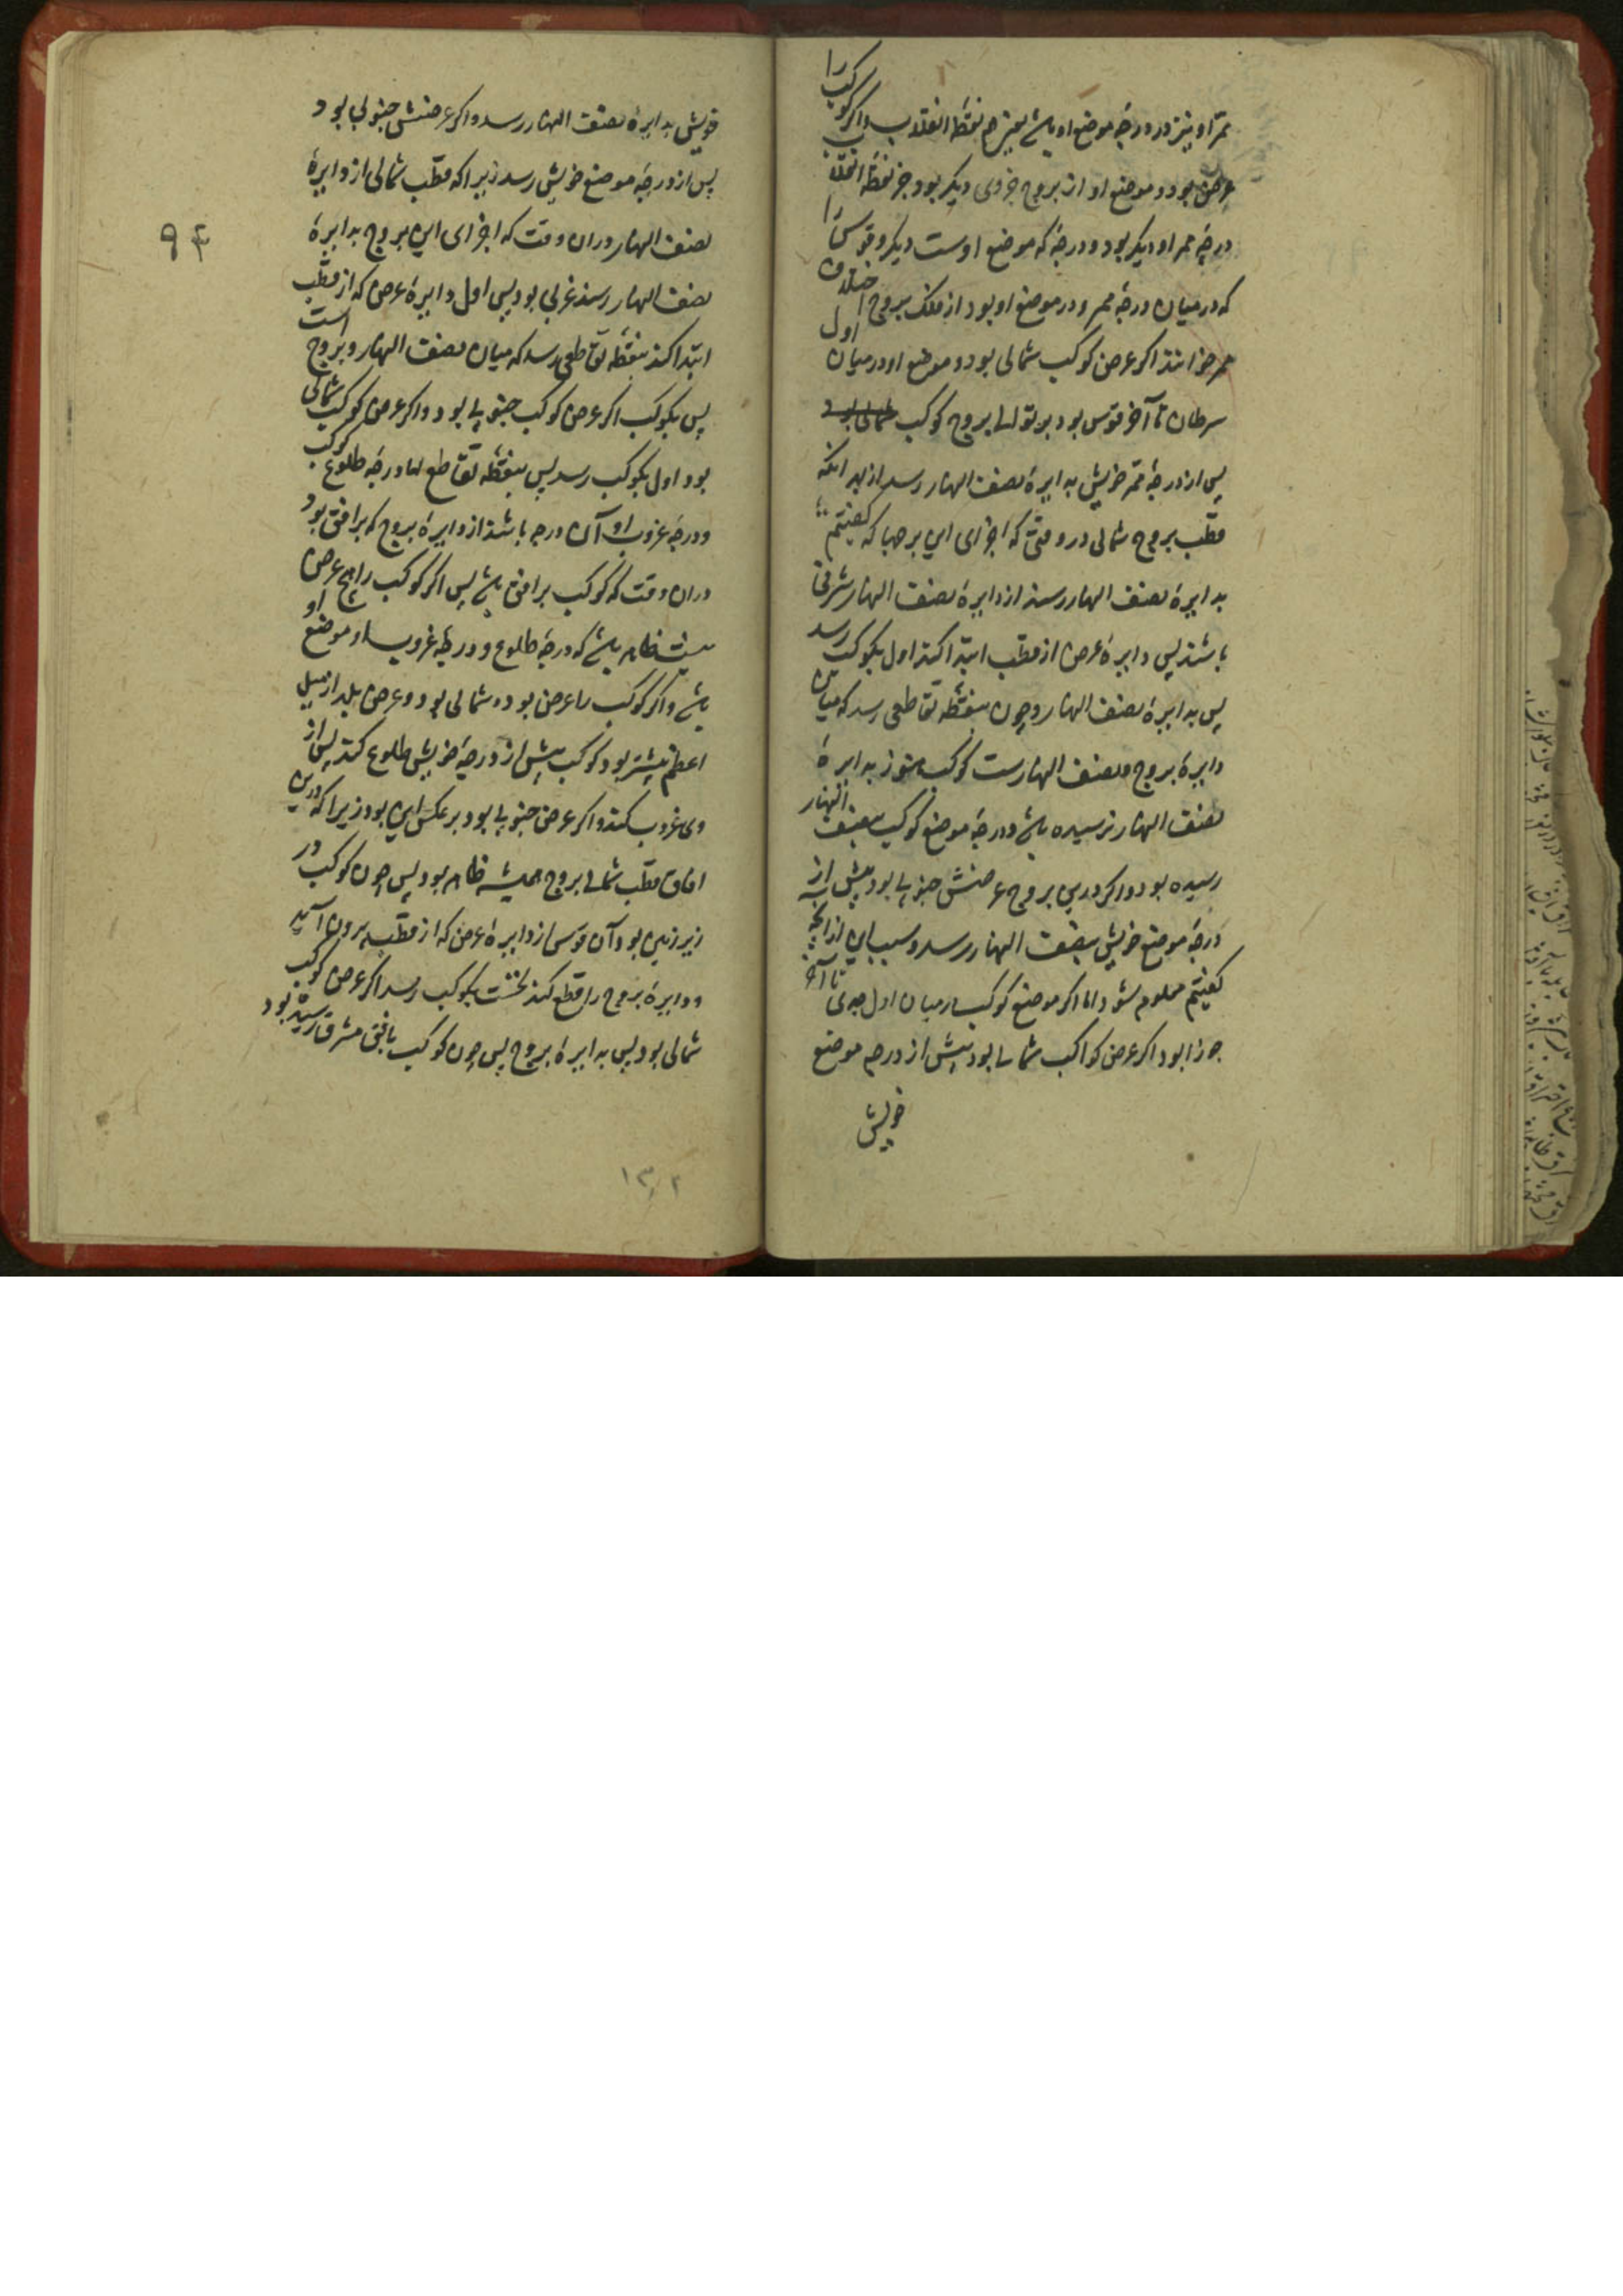 ممر او نیز در درجهٔ موضع او باشد بعینها هم نقطهٔ انقلاب و اگر کوکب را
عرض بود و موضع او از بروج جزوی دیگر بود جز نقطهٔ انقلاب
درجهٔ ممر او دیگر بود و درجهٔ که موضع اوست دیگر و قوس را
که در میان درجهٔ ممر و در موضع او بود از فلک بروج اختلاف
ممر خوانند اگر عرض کوکب شمالی بود و موضع او در میان اول
سرطان تا آخر قوس بود بر توالی بروج کوکب
پس از درجهٔ ممر خویش بدایرهٔ نصف النهار رسد از بهر آنکه
قطب بروج شمالی در وقتی که اجزای این برجها که گفتیم
بدایرهٔ نصف النهار رسند از دایرهٔ نصف النهار شرقی
باشند پس دایرهٔ عرض از قطب ابتدا کند اول بکوکب رسد
پس بدایرهٔ نصف النهار و چون بنقطهٔ تقاطعی رسد که میان
دایرهٔ بروج و نصف النهارست کوکب هنوز بدایرهٔ
نصف النهار نرسیده باشد و درجهٔ موضع کوکب بنصف النهار
رسیده بود و اگر درین بروج عرضش جنوبی بود پیش از
درجهٔ موضع خویش بنصف النهار رسد و سبب این از آنچه
گفتیم معلوم شود و اما اگر موضع کوکب در میان اول جدی تا آخر
جوزا بود اگر عرض کواکب شمالی بود پیش از درجه موضع
خویش
خویش بدایرهٔ نصف النهار رسد و اگر عرضش جنوبی بود
پس از درجهٔ موضع خویش رسد زیرا که قطب شمالی از دایرهٔ
نصف النهار در آن وقت که اجزای این بروج بدایرهٔ
نصف النهار رسند غربی بود پس اول دایرهٔ عرض که از قطب
ابتدا کند بنقطهٔ تقاطعی رسد که میان نصف النهار و بروج است
پس بکوکب اگر عرض کوکب جنوبی بود و اگر عرض کوکب شمالی
بود اول بکوکب رسد پس بنقطهٔ تقاطع اما درجهٔ طلوع کوکب
و درجهٔ غروب او آن درجه باشد از دایرهٔ بروج که بر افق بود
در آن وقت که کوکب بر افق باشد پس اگر کوکب را هیچ عرض
نیست ظاهر باشد که درجهٔ طلوع و درجهٔ غروب او موضع او
باشد و اگر کوکب را عرض بود و شمالی بود و عرض بلد از میل
اعظم بیشتر بود کوکب پیش از درجهٔ خویش طلوع کند پس از
وی غروب کند و اگر عرض جنوبی بود بر عکس این بود زیرا که درین
افاق قطب شمالی بروج همیشه ظاهر بود پس چون کوکب در
زیر زمین بود آن قوسی از دایرهٔ عرض که از قطب بیرون آید
و دایرهٔ بروج را قطع کند نخست بکوکب رسد اگر عرض کوکب
شمالی بود پس بدایرهٔ بروج پس چون کوکب بافق مشرق رسیده بود
۹۴
۱۳۲